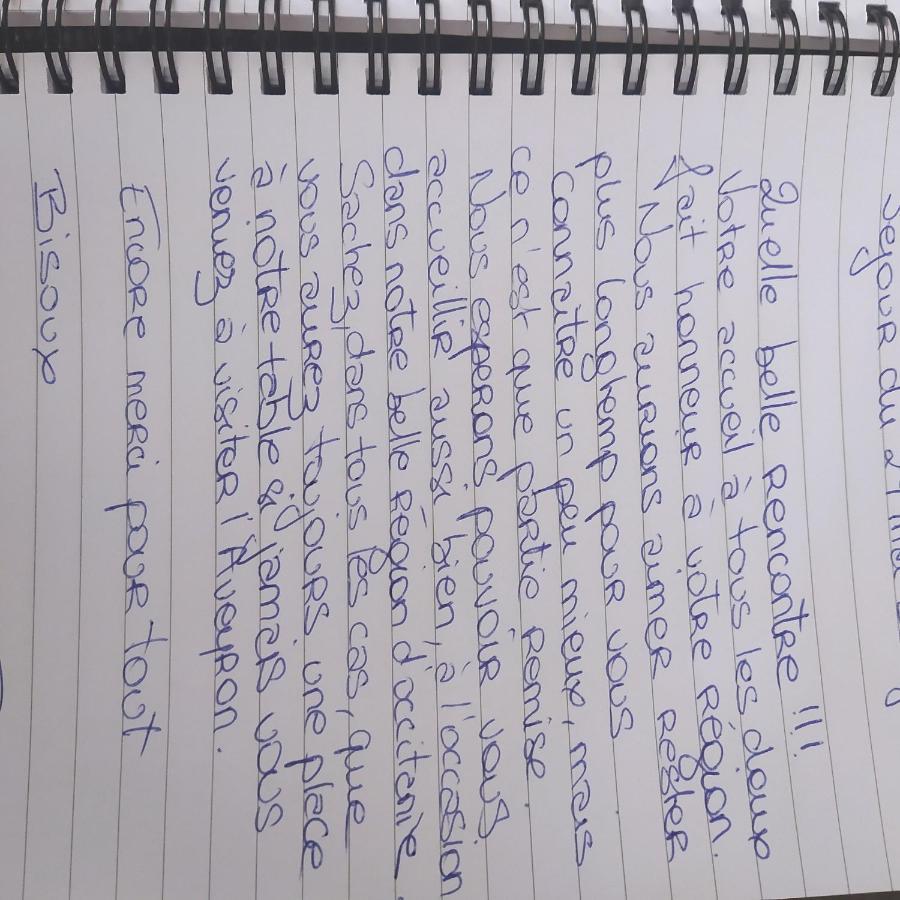 séjour du 21
Quelle belle rencontre !!!
Votre accueil à tous les deux
fait honneur à vôtre région.
Nous aurions aimer rester
plus longtemp pour vous
connaitre un peu mieux, mais
ce n'est que partie remise.
Nous esperons pouvoir vous
accueillir aussi bien, à l'occasion
dans nôtre belle région d'occitanie.
Sachez, dans tous les cas, que
vous aurez toujours une place
à nôtre table si jamais vous
venez à visiter l'Aveyron.
Encore merci pour tout
Bisoux